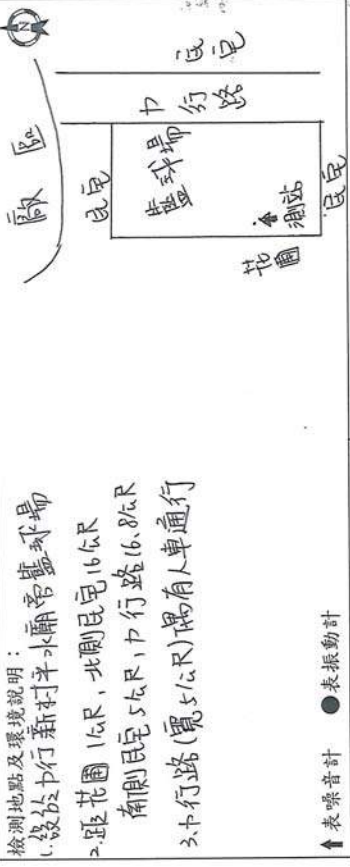 檢測地點及環境說明：
1.設於力行新村平水廟旁籃球場
2.距花圃1公尺，北側民宅16公尺
南側民宅5公尺，力行路16.8公尺
3.力行路(寬5公尺)偶有人車通行
表噪音計
表振動計
廠區
N
民宅
力行路
民宅
籃球場
花圃
測站
民宅